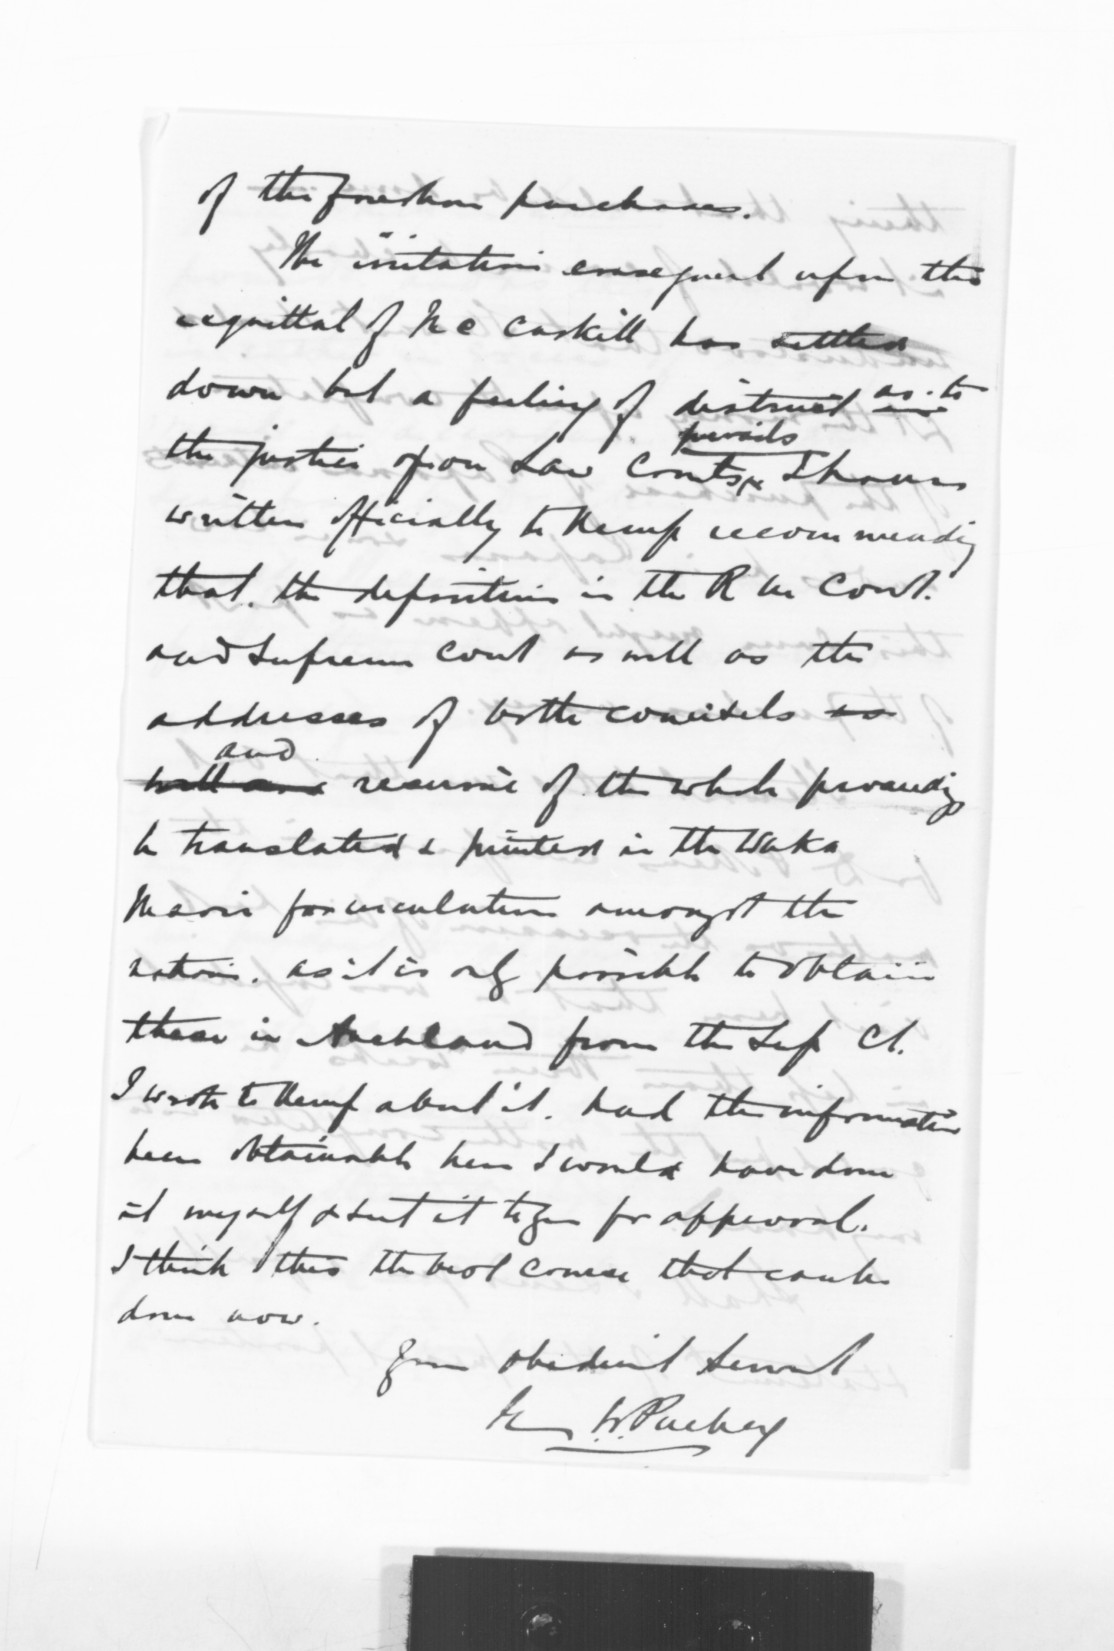 of the foreshore purchases.
The irritation consequent upon the
acquittal of McCaskill has settled
down but a feeling of distrust as to
the justice of our Law Courts prevails I have
written officially to Kemp recommending
that. the depositions in the R M Court.
and Supreme Court as well as the
addresses of both counsels as
well as a and resumé of the whole proceedings
be translated & printed in the Waka
Maori for circulation amongst the
natives. as it is only possible to obtain
these in Auckland from the Sup Ct.
I wrote to Kemp about it. had the information
been obtainable here I would have done
it myself & sent it to you for approval.
I think this the best course that can be
done now.
Your obedient Servant
W. Puckey